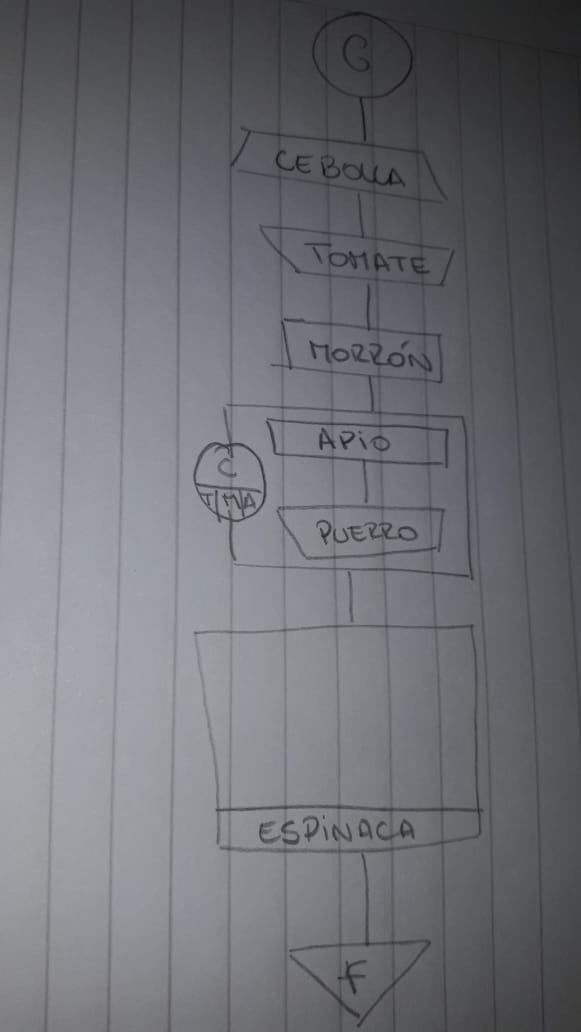 C
CEBOLLA
TOMATE
MORRÓN
APIO
C
T/M/A
PUERRO
ESPINACA
F